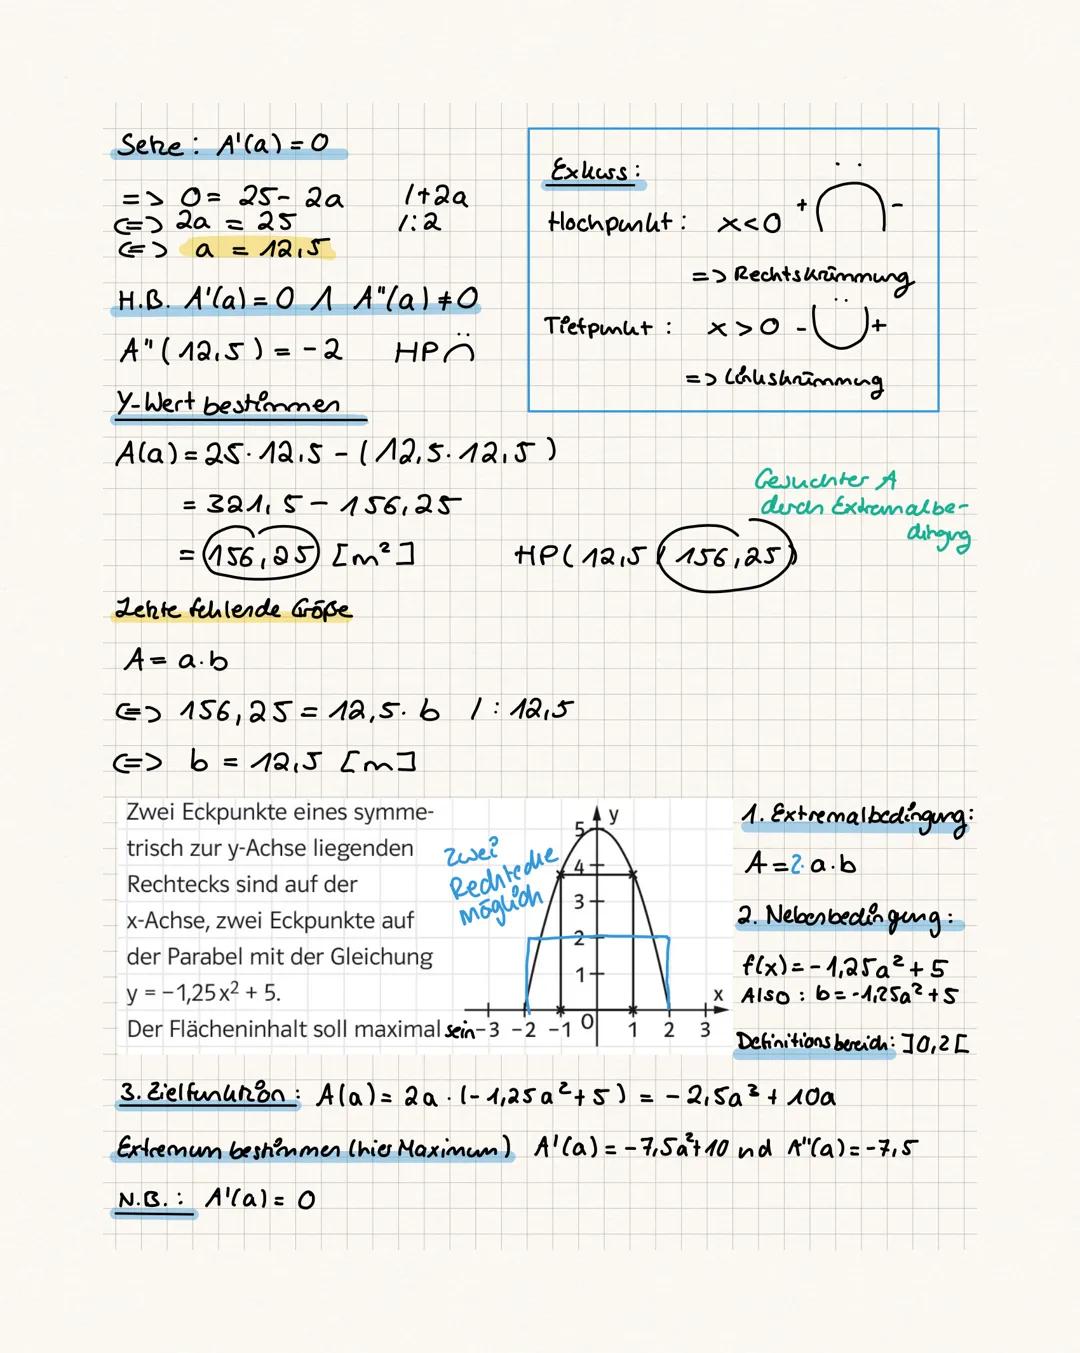 Setze: A'(a) = 0
=> 0 = 25 - 2a /+2a
<=> 2a = 25 /:2
<=> a = 12,5
H.B. A'(a) = 0 ∧ A"(a) ≠ 0
A"(12,5) = -2 HP
Y-Wert bestimmen
A(a) = 25·12,5 - (12,5·12,5)
= 321,5 - 156,25
= 156,25 [m²]
HP(12,5 / 156,25)
Exkurs:
Hochpunkt: x<0 + -
=> Rechtskrümmung
Tiefpunkt: x>0 - +
=> Linkskrümmung
Gesuchter A
durch Extremalbe-
dingung
Letzte fehlende Größe
A = a·b
<=> 156,25 = 12,5·b /:12,5
<=> b = 12,5 [m]
Zwei Eckpunkte eines symme-
trisch zur y-Achse liegenden
Rechtecks sind auf der
x-Achse, zwei Eckpunkte auf
der Parabel mit der Gleichung
y = -1,25 x² + 5.
Der Flächeninhalt soll maximal sein
Zwei
Rechtecke
möglich
y
5
4
3
2
1
x
-3 -2 -1 0 1 2 3
1. Extremalbedingung:
A = 2·a·b
2. Nebenbedingung:
f(x) = -1,25a² + 5
Also: b = -1,25a² + 5
Definitionsbereich: ]0,2[
3. Zielfunktion: A(a) = 2a·(-1,25a² + 5) = -2,5a³ + 10a
Extremum bestimmen (hier Maximum) A'(a) = -7,5a² + 10 nd A"(a) = -7,5
N.B.: A'(a) = 0